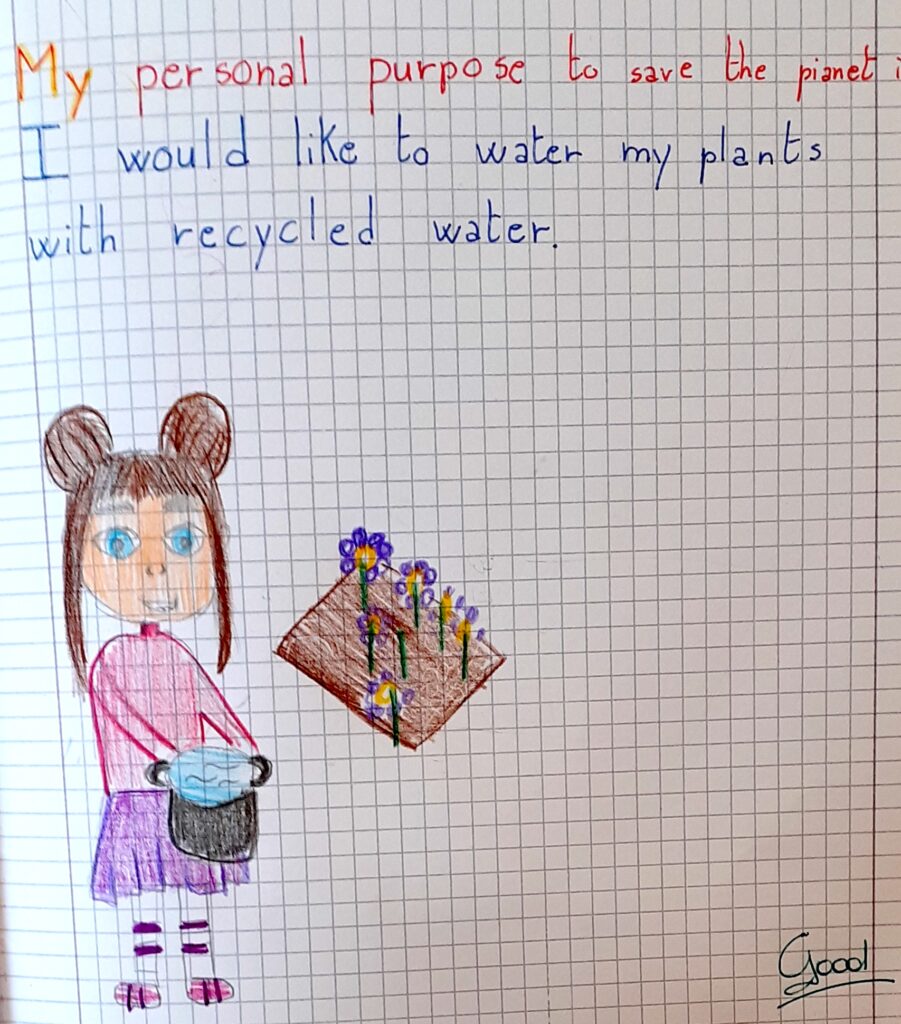 My personal purpose to save the planet i
I would like to water my plants
with recycled water.
Good